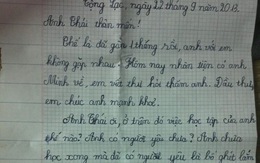 Cộng Lạc, ngày 22 tháng 9 năm 2013.
Anh Phái thân mến!
Thế là đã gần 1 tháng rồi, anh với em
không gặp nhau. Hôm nay nhân tiện có anh
Minh về, em viết thư hỏi thăm anh. Đầu thư,
em chúc anh mạnh khỏe.
Anh Phái ơi, ở trên đó việc học tập của anh
thế nào? Anh có người yêu chưa? Anh chưa
học xong mà đã có người yêu là bố ghét lắm